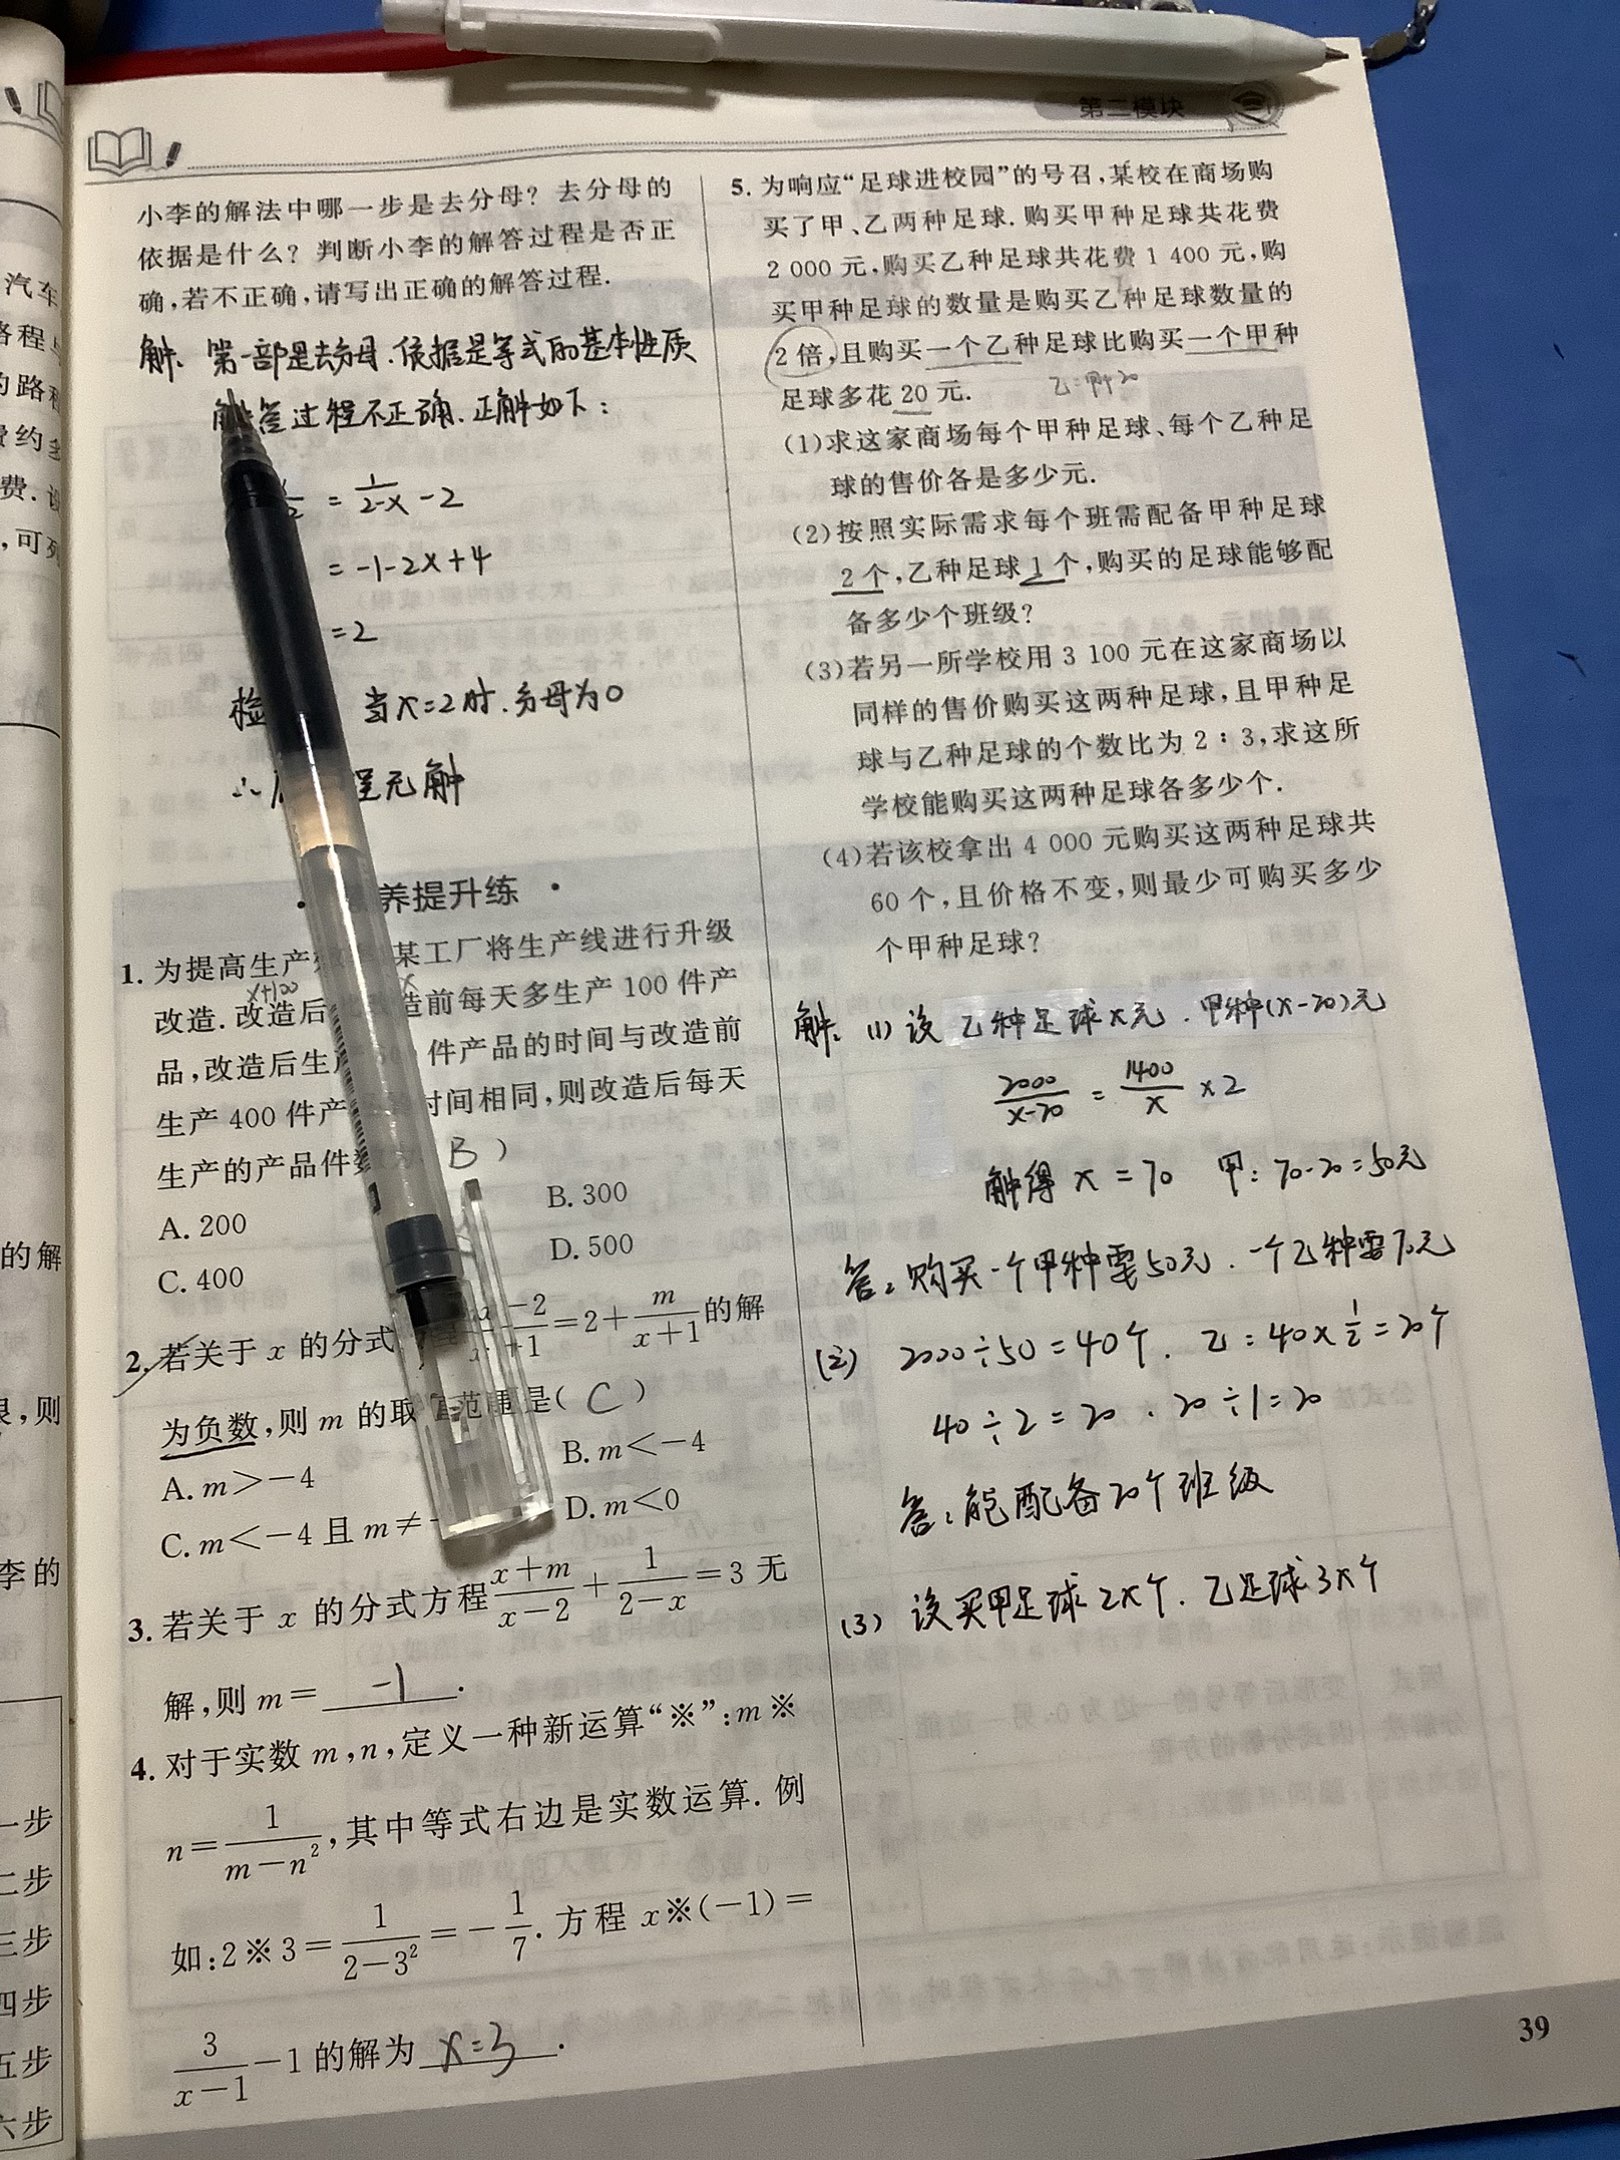 第二模块
小李的解法中哪一步是去分母？去分母的
依据是什么？判断小李的解答过程是否正
确,若不正确,请写出正确的解答过程.
解: 第一部是去分母.依据是等式的基本性质
答过程不正确.正解如下:
= 1/(2-x) - 2
= -1-2x+4
=2
检 当x=2时.分母为0
∴ 程无解
养提升练
1. 为提高生产 某工厂将生产线进行升级
x+100 x
改造.改造后 造前每天多生产 100 件产
品,改造后生 件产品的时间与改造前
生产 400 件产 时间相同,则改造后每天
生产的产品件 B )
A. 200 B. 300
C. 400 D. 500
2. 若关于 x 的分式 -2/ +1=2+m/(x+1)的解
为负数,则 m 的取 范围是( C )
A. m>-4 B. m<-4
C. m<-4 且 m≠ D. m<0
3. 若关于 x 的分式方程(x+m)/(x-2)+1/(2-x)=3 无
解,则 m= -1 .
4. 对于实数 m,n,定义一种新运算“※”:m※
n=1/(m-n²),其中等式右边是实数运算. 例
如:2※3=1/(2-3²)=-1/7. 方程 x※(-1)=
3/(x-1)-1 的解为 x=3 .
5. 为响应“足球进校园”的号召,某校在商场购
买了甲、乙两种足球. 购买甲种足球共花费
2 000 元,购买乙种足球共花费 1 400 元,购
买甲种足球的数量是购买乙种足球数量的
2 倍,且购买一个乙种足球比购买一个甲种
足球多花 20 元. 乙=甲+20
(1)求这家商场每个甲种足球、每个乙种足
球的售价各是多少元.
(2)按照实际需求每个班需配备甲种足球
2 个,乙种足球 1 个,购买的足球能够配
备多少个班级?
(3)若另一所学校用 3 100 元在这家商场以
同样的售价购买这两种足球,且甲种足
球与乙种足球的个数比为 2∶3,求这所
学校能购买这两种足球各多少个.
(4)若该校拿出 4 000 元购买这两种足球共
60 个,且价格不变,则最少可购买多少
个甲种足球?
解: (1) 设乙种足球x元.甲种(x-20)元
2000/(x-20) = 1400/x ×2
解得 x=70 甲:70-20=50元
答:购买一个甲种需50元.一个乙种需70元
(2) 2000÷50=40个. 乙:40×1/2=20个
40÷2=20 . 20÷1=20
答:能配备20个班级
(3) 设买甲足球2x个.乙足球3x个
39
汽车
路程
的路程
费.
,可列
的解
,则
李的
一步
二步
三步
四步
五步
六步